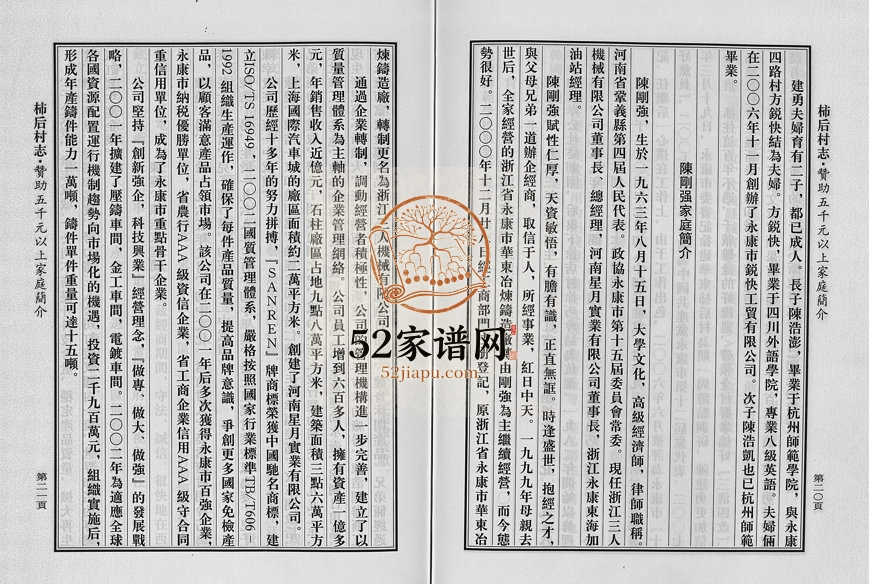 柿后村志·贊助五千元以上家庭簡介
第二〇頁
建勇夫婦育有二子，都已成人。長子陳浩澎，畢業于杭州師範學院，與永康
四路村方銳快結為夫婦。方銳快，畢業于四川外語學院，專業八級英語。夫婦倆
在二〇〇六年十一月創辦了永康市銳快工貿有限公司。次子陳浩凱也已杭州師範
畢業。
陳剛强家庭簡介
陳剛強，生於一九六三年八月十五日，大學文化，高級經濟師，律師職稱。
河南省鞏義縣第四屆人民代表。政協永康市第十五屆委員會常委。現任浙江三人
機械有限公司董事長、總經理，河南星月實業有限公司董事長，浙江永康東海加
油站經理。
陳剛強賦性仁厚，天資敏悟，有膽有識，正直無誑。時逢盛世，抱經之才，
與父母兄弟一道辦企經商，取信于人，所經事業，紅日中天。一九九九年母親去
世后，全家經營的浙江省永康市華東冶煉鑄造廠由剛強為主繼續經營，而今態
勢很好。二〇〇〇年十二月十日經商部門登記，原浙江省永康市華東冶
煉鑄造廠，轉制更名為浙江三人機械有限公司。
通過企業轉制，調動經營者積極性，公司的管理機構進一步完善，建立了以
質量管理體系為主軸的企業管理網絡。公司員工增到六百多人，擁有資産一億多
元，年銷售收入近億元，石柱廠區占地九點八萬平方米，建築面積三點六萬平方
米，上海國際汽車城的廠區面積約二萬平方米。創建了河南星月實業有限公司。
公司歷經十多年的努力拼搏，『SANREN』牌商標榮獲中國馳名商標，建
立ISO/TS 16949，二〇〇二國質管理體系，嚴格按照國家行業標準TB/T606－
1992 組織生産運作，確保了每件産品質量，提高品牌意識，爭創更多國家免檢産
品，以顧客滿意産品占領市場。該公司在二〇〇一年后多次獲得永康市百強企業，
永康市納税優勝單位，省農行AAA 級資信企業，省工商企業信用AAA 級守合同
重信用單位，成為了永康市重點骨干企業。
公司堅持『創新強企，科技興業』經營理念，『做專、做大、做強』的發展戰
略，二〇〇一年擴建了壓鑄車間，金工車間，電鍍車間。二〇〇二年為適應全球
各國資源配置運行機制趨勢向市場化的機遇，投資二千九百萬元，組織實施后，
形成年産鑄件能力一萬噸，鑄件單件重量可達十五噸。
柿后村志·贊助五千元以上家庭簡介
第二一頁
52家谱网
52jiapu.com